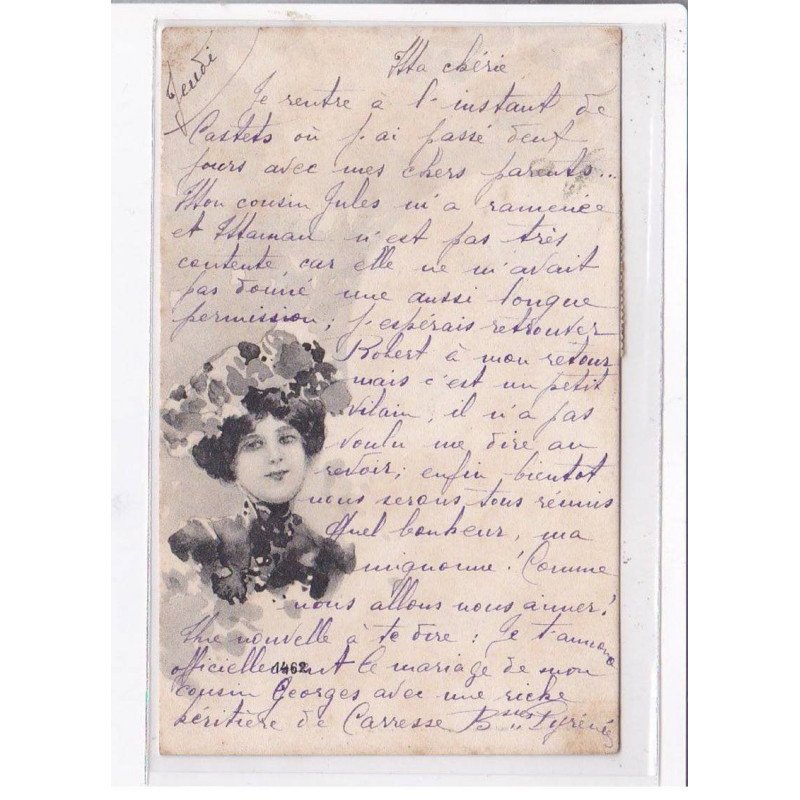 Jeudi
Ma chérie
Je rentre à l'instant de
Castets où j'ai passé deux
jours avec mes chers parents..
Mon cousin Jules m'a ramenée
et Maman n'est pas très
contente, car elle ne m'avait
pas donné une aussi longue
permission; j'espérais retrouver
Robert à mon retour
mais c'est un petit
vilain, il n'a pas
voulu me dire au
revoir; enfin bientôt
nous serons tous réunis
Quel bonheur, ma
mignonne! Comme
nous allons nous aimer!
Une nouvelle à te dire: Je t'annonce
officiellement le mariage de mon
1462
cousin Georges avec une riche
héritière de Carresse Bses Pyrénées